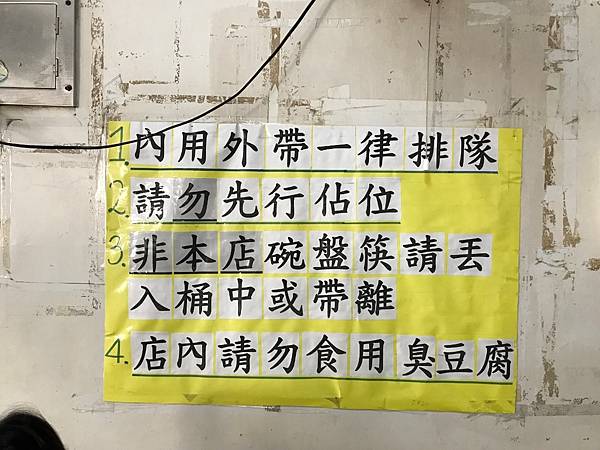 1.內用外帶一律排隊
2.請勿先行佔位
3.非本店碗盤筷請丟
入桶中或帶離
4.店內請勿食用臭豆腐